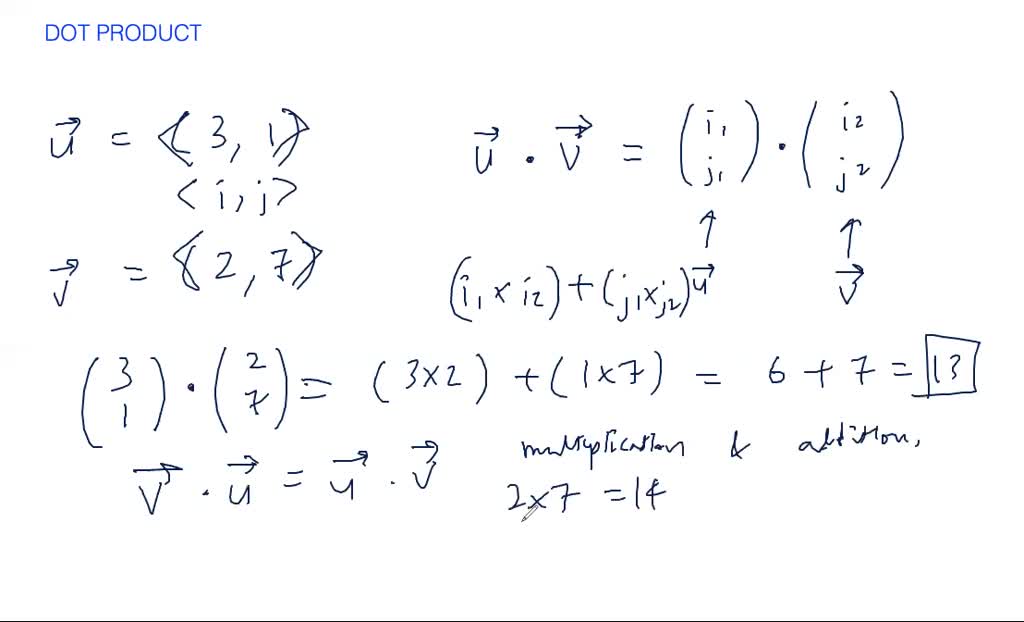 DOT PRODUCT
u⃗ = <3, 1>
<i, j>
v⃗ = <2, 7>
u⃗ · v⃗ = (i₁ j₁) · (i₂ j₂)
↑ ↑
u⃗ v⃗
(i₁ x i₂) + (j₁ x j₂)
(3 1) · (2 7) = (3x2) + (1x7) = 6 + 7 = 13
multiplication & addition,
v⃗ · u⃗ = u⃗ · v⃗
2x7 = 14